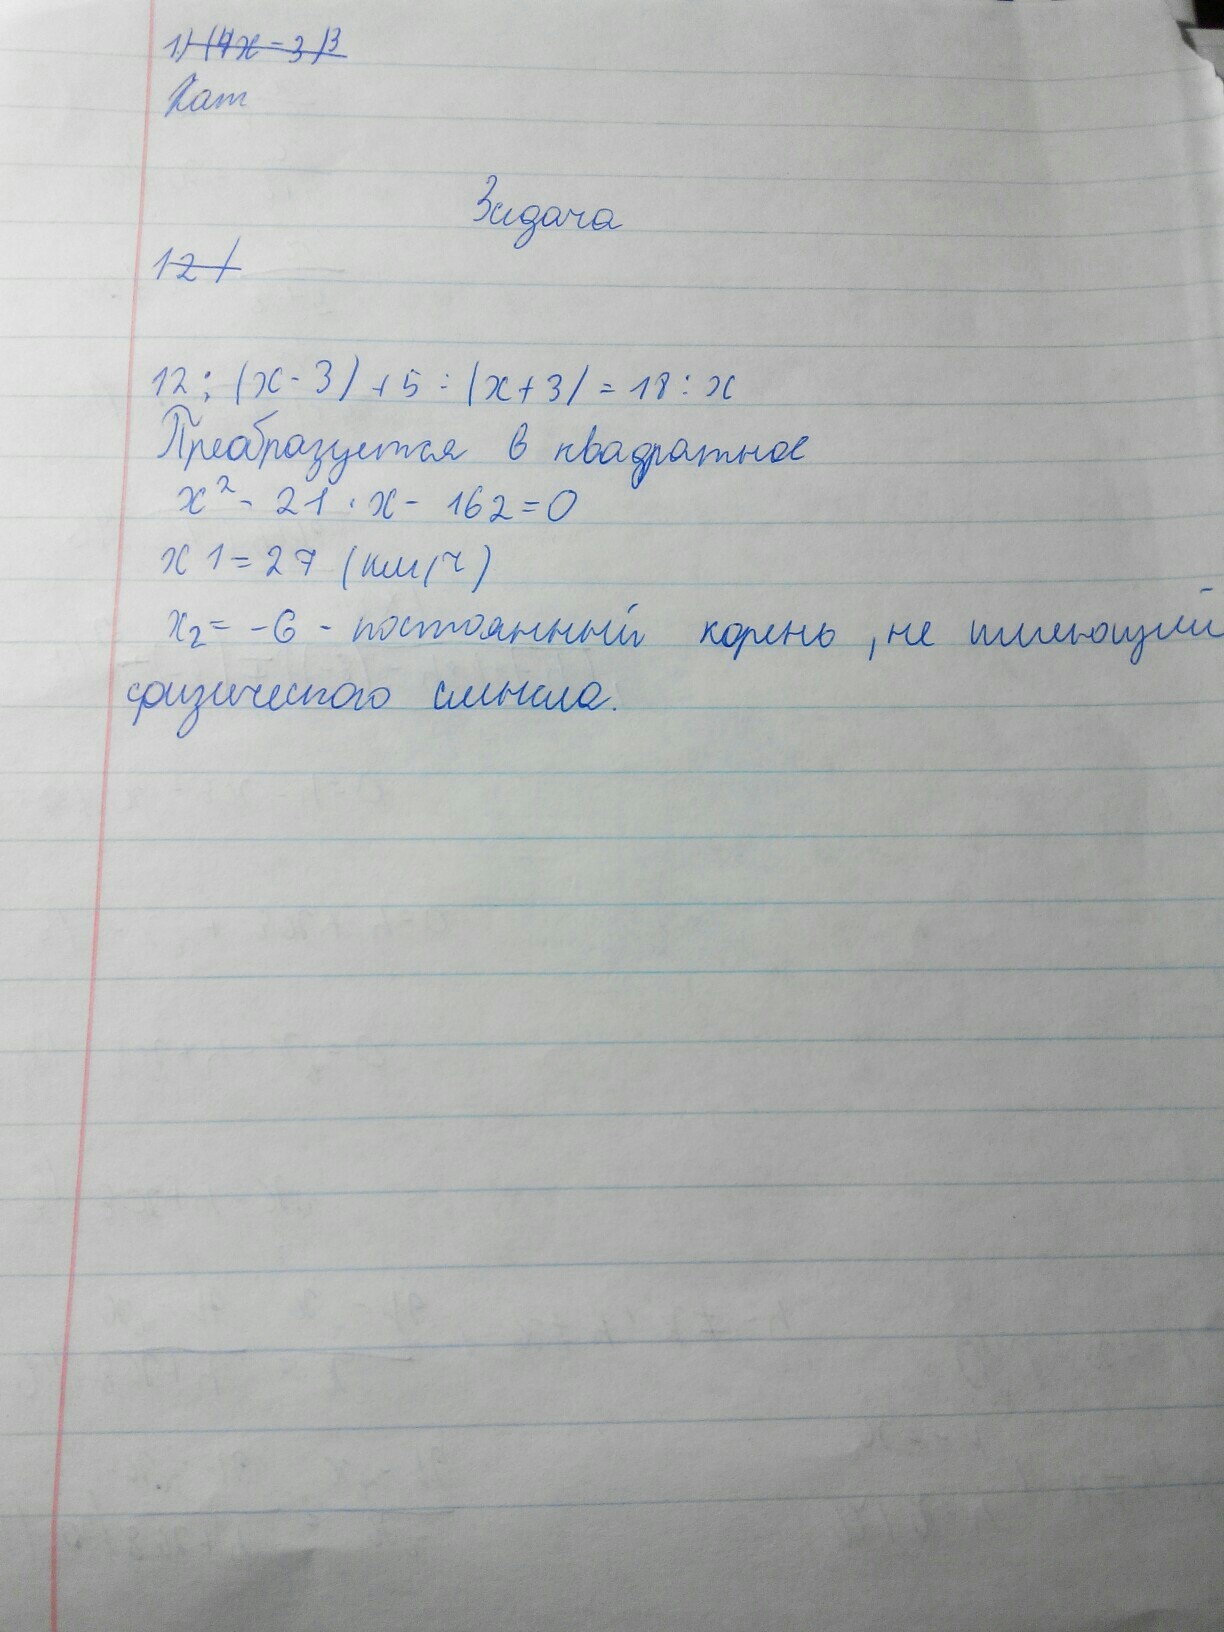 1) (4x - 3)3
Кат
Задача
12 /
12 : (x - 3) + 5 : (x + 3) = 18 : x
Преобразуется в квадратное
x² - 21 · x - 162 = 0
x 1 = 27 (км/ч)
x₂ = -6 - постоянный корень, не имеющий
физического смысла.